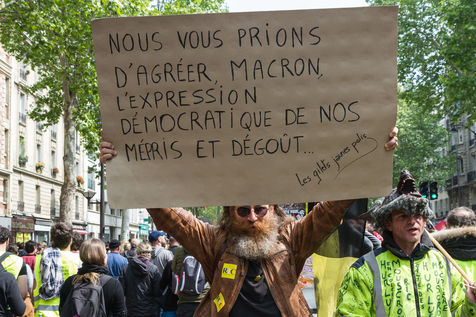 NOUS VOUS PRIONS
D'AGRÉER, MACRON,
L'EXPRESSION
DÉMOCRATIQUE DE NOS
MÉPRIS ET DÉGOÛT...
Les gilets jaunes polis